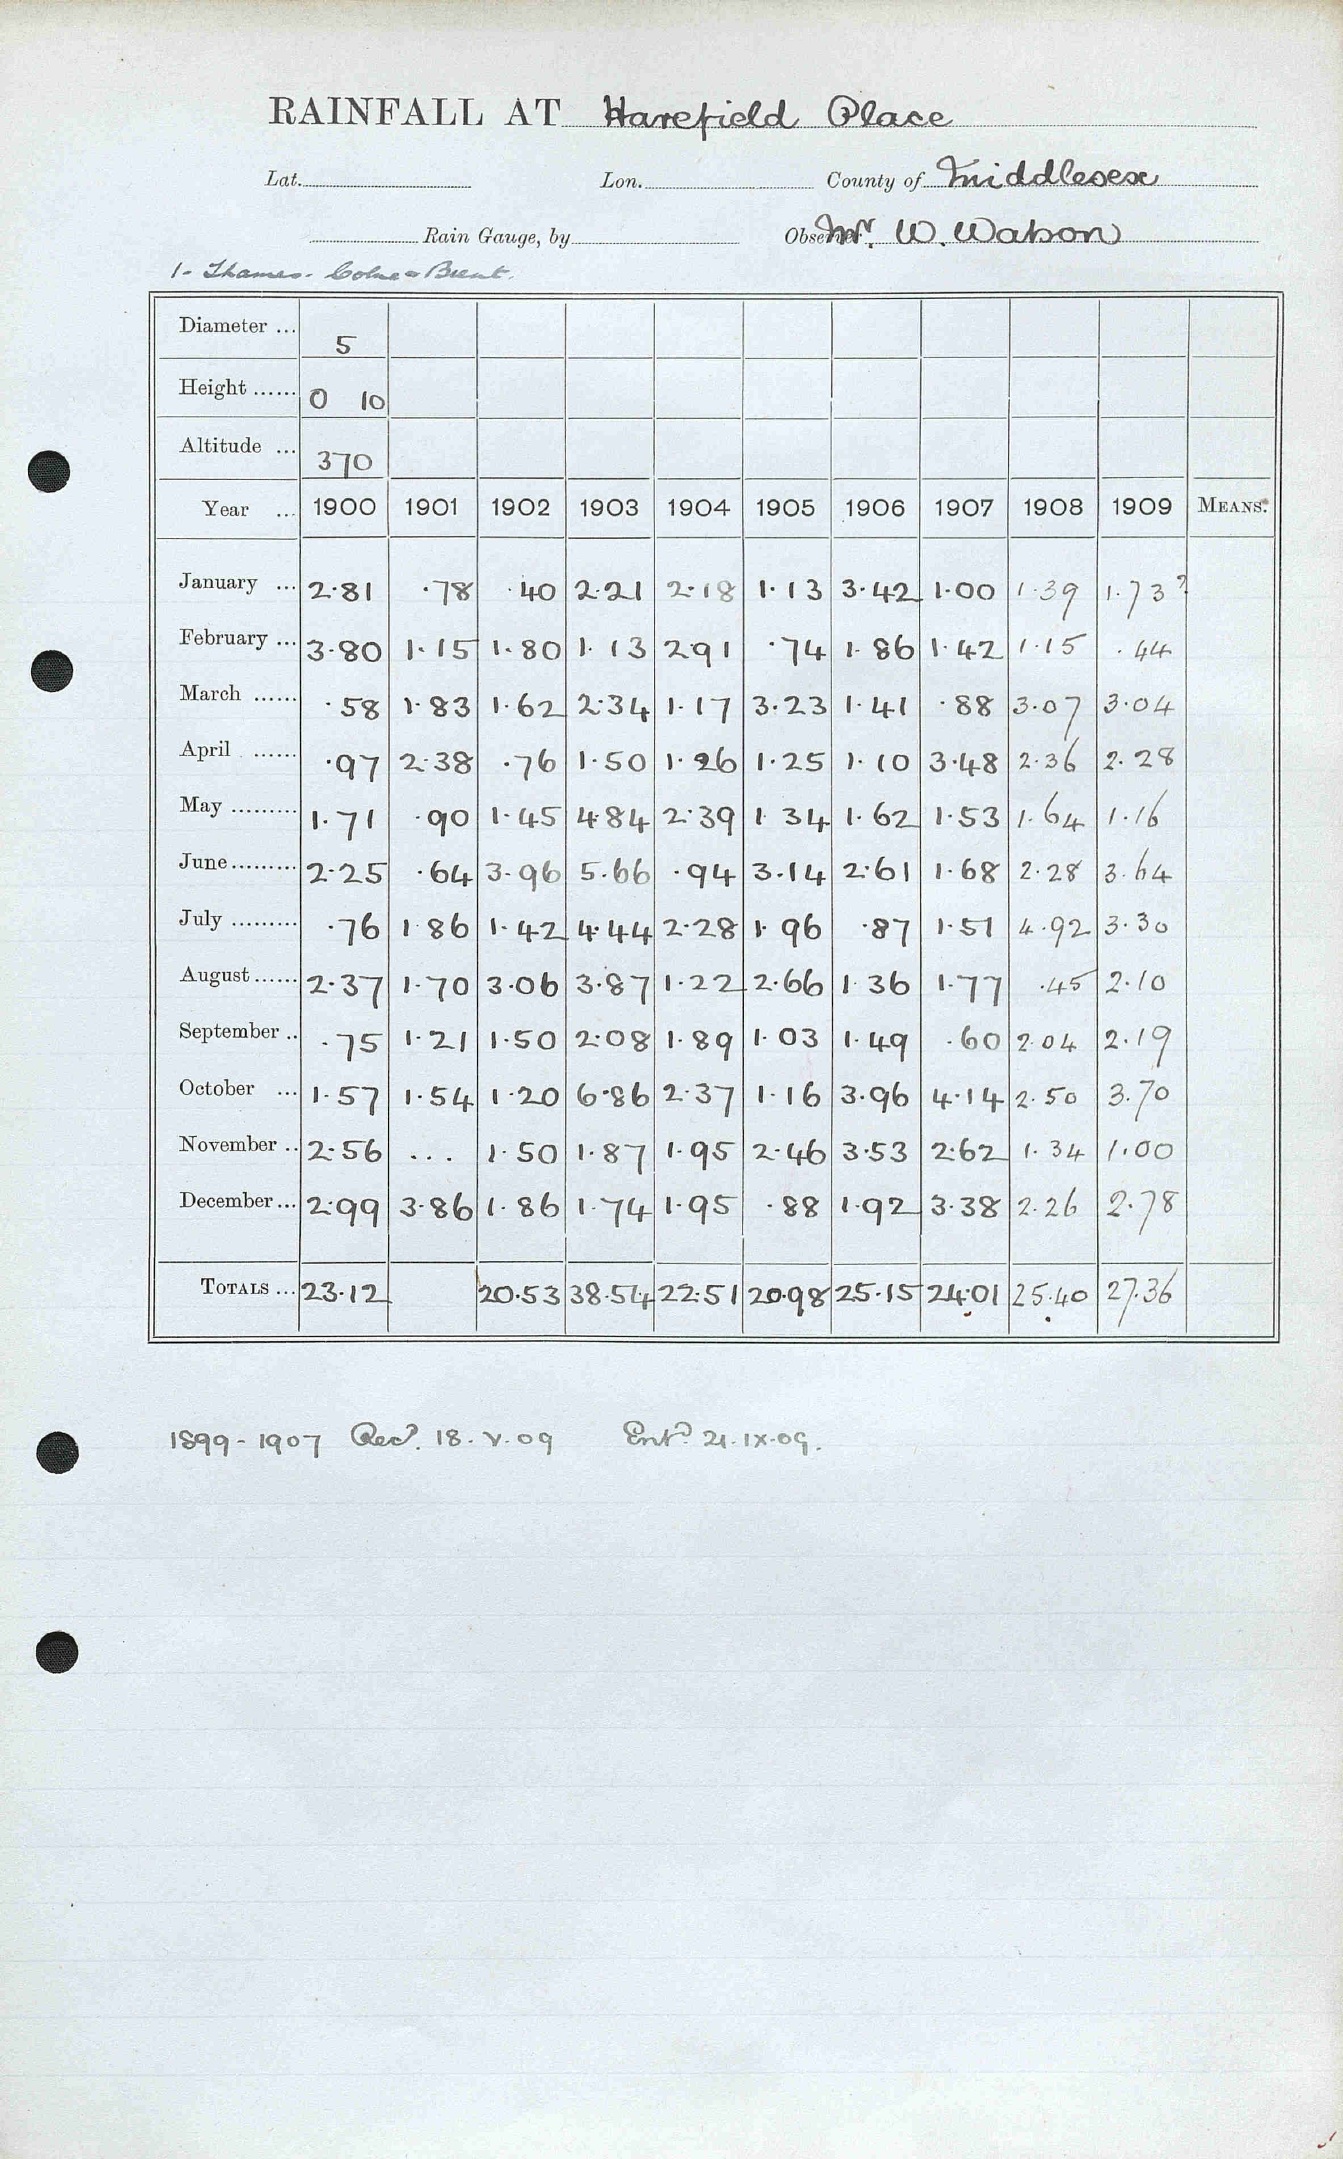 RAINFALL AT Harefield Place
Lat. Lon. County of Middlesex
Rain Gauge, by Observer Mr. W. Watson
1 - Thames - Colne & Brent.
Diameter ... 5
Height ...... 0 10
Altitude ... 370
Year ... 1900 1901 1902 1903 1904 1905 1906 1907 1908 1909 MEANS.
January ... 2.81 .78 .40 2.21 2.18 1.13 3.42 1.00 1.39 1.73?
February ... 3.80 1.15 1.80 1.13 2.91 .74 1.86 1.42 1.15 .44
March ...... .58 1.83 1.62 2.34 1.17 3.23 1.41 .88 3.07 3.04
April ...... .97 2.38 .76 1.50 1.26 1.25 1.10 3.48 2.36 2.28
May ......... 1.71 .90 1.45 4.84 2.39 1.34 1.62 1.53 1.64 1.16
June ......... 2.25 .64 3.96 5.66 .94 3.14 2.61 1.68 2.28 3.64
July ......... .76 1.86 1.42 4.44 2.28 1.96 .87 1.51 4.92 3.30
August ...... 2.37 1.70 3.06 3.87 1.22 2.66 1.36 1.77 .45 2.10
September .. .75 1.21 1.50 2.08 1.89 1.03 1.49 .60 2.04 2.19
October ... 1.57 1.54 1.20 6.86 2.37 1.16 3.96 4.14 2.50 3.70
November .. 2.56 ... 1.50 1.87 1.95 2.46 3.53 2.62 1.34 1.00
December ... 2.99 3.86 1.86 1.74 1.95 .88 1.92 3.38 2.26 2.78
TOTALS ... 23.12 20.53 38.54 22.51 20.98 25.15 24.01 25.40 27.36
1899 - 1907 Recd. 18.V.09 Entd. 21.IX.09.